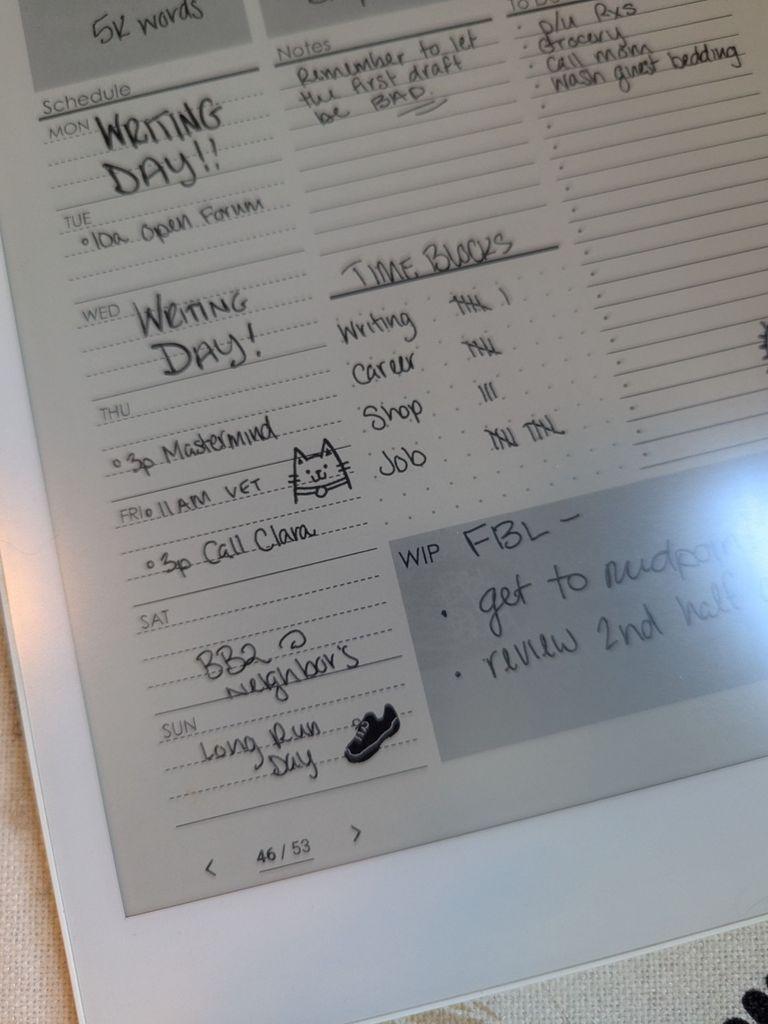 5k words
Schedule
MON WRITING
DAY!!
TUE
10a Open Forum
WED WRITING
DAY!
THU
3p Mastermind
FRI 11AM VET
3p Call Clara
SAT
BB2 @
Neighbor's
SUN
Long Run
Day
Notes
Remember to let
the first draft
be BAD.
TIME BLOCKS
Writing
Career
Shop
Job
TO DO
p/u Rxs
Grocery
call mom
wash guest bedding
WIP FBL -
get to midpoin
review 2nd half
< 46 / 53 >